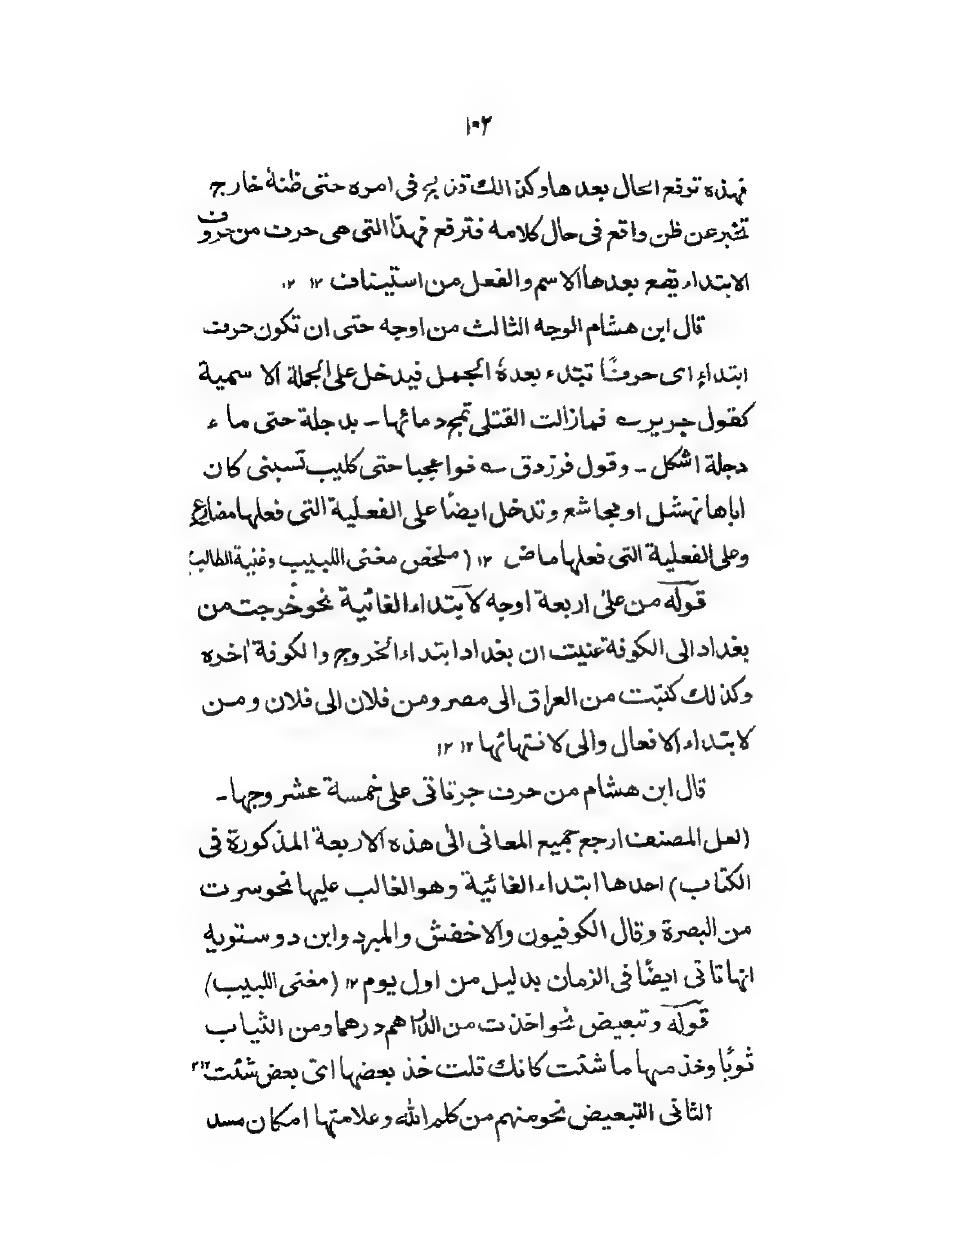 ١٠٢
فهذه ترفع الحال بعدها وكذالك في امره حتى ظنه خارج
تخبر عن ظن واقع في حال كلامه فترفع فهذا التي هي حرف من حروف
الابتداء يقع بعدها الاسم والفعل من استيناف ١٢ ١٢
قال ابن هشام الوجه الثالث من اوجه حتى ان تكون حرف
ابتداء اى حرفًا تبتدء بعدهٗ الجمل فيدخل على الجملة الا سمية
كقول جرير ؎ فمازالت القتلى تمج دمائها ـ بدجلة حتى ماء
دجلة اشكل ـ وقول فرزدق ؎ فوا عجبا حتى كليب تسبنى كان
اباها نهشل او مجاشع وتدخل ايضًا على الفعلية التى فعلها مضارع
وعلى الفعلية التى فعلها ماض ١٢ (ملخص مغنى اللبيب وغنية الطالب
قوله من على اربعة اوجه لابتداء الغائية نحو خرجت من
بغداد الى الكوفة عنيت ان بغداد ابتداء الخروج والكوفة اخره
وكذلك كتبت من العراق الى مصر ومن فلان الى فلان ومن
لابتداء الافعال والى لانتهائها ١٢ ١٢
قال ابن هشام من حرف جر تاتى على خمسة عشر وجها ـ
(لعل المصنف ارجع جميع المعانى الى هذه الاربعة المذكورة فى
الكتاب) احدها ابتداء الغائية وهو الغالب عليها نحو سرت
من البصرة وقال الكوفيون والاخفش والمبرد وابن دوستويه
انها تاتى ايضًا فى الزمان بدليل من اول يوم ١٢ (مغنى اللبيب)
قوله وتبعيض نحو اخذت من الدراهم درهما ومن الثياب
ثوبًا وخذ منها ما شئت كانك قلت خذ بعضها اىّ بعض شئت ١٢
الثانى التبعيض نحو منهم من كلم الله وعلامتها امكان مسد